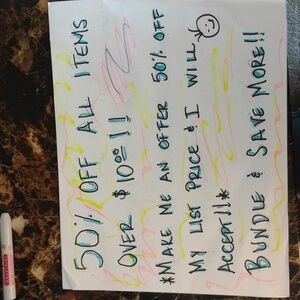 50% OFF ALL ITEMS
OVER $10.00!!
*MAKE ME AN OFFER 50% OFF
MY LIST PRICE & I WILL
ACCEPT!!*
BUNDLE & SAVE MORE!!